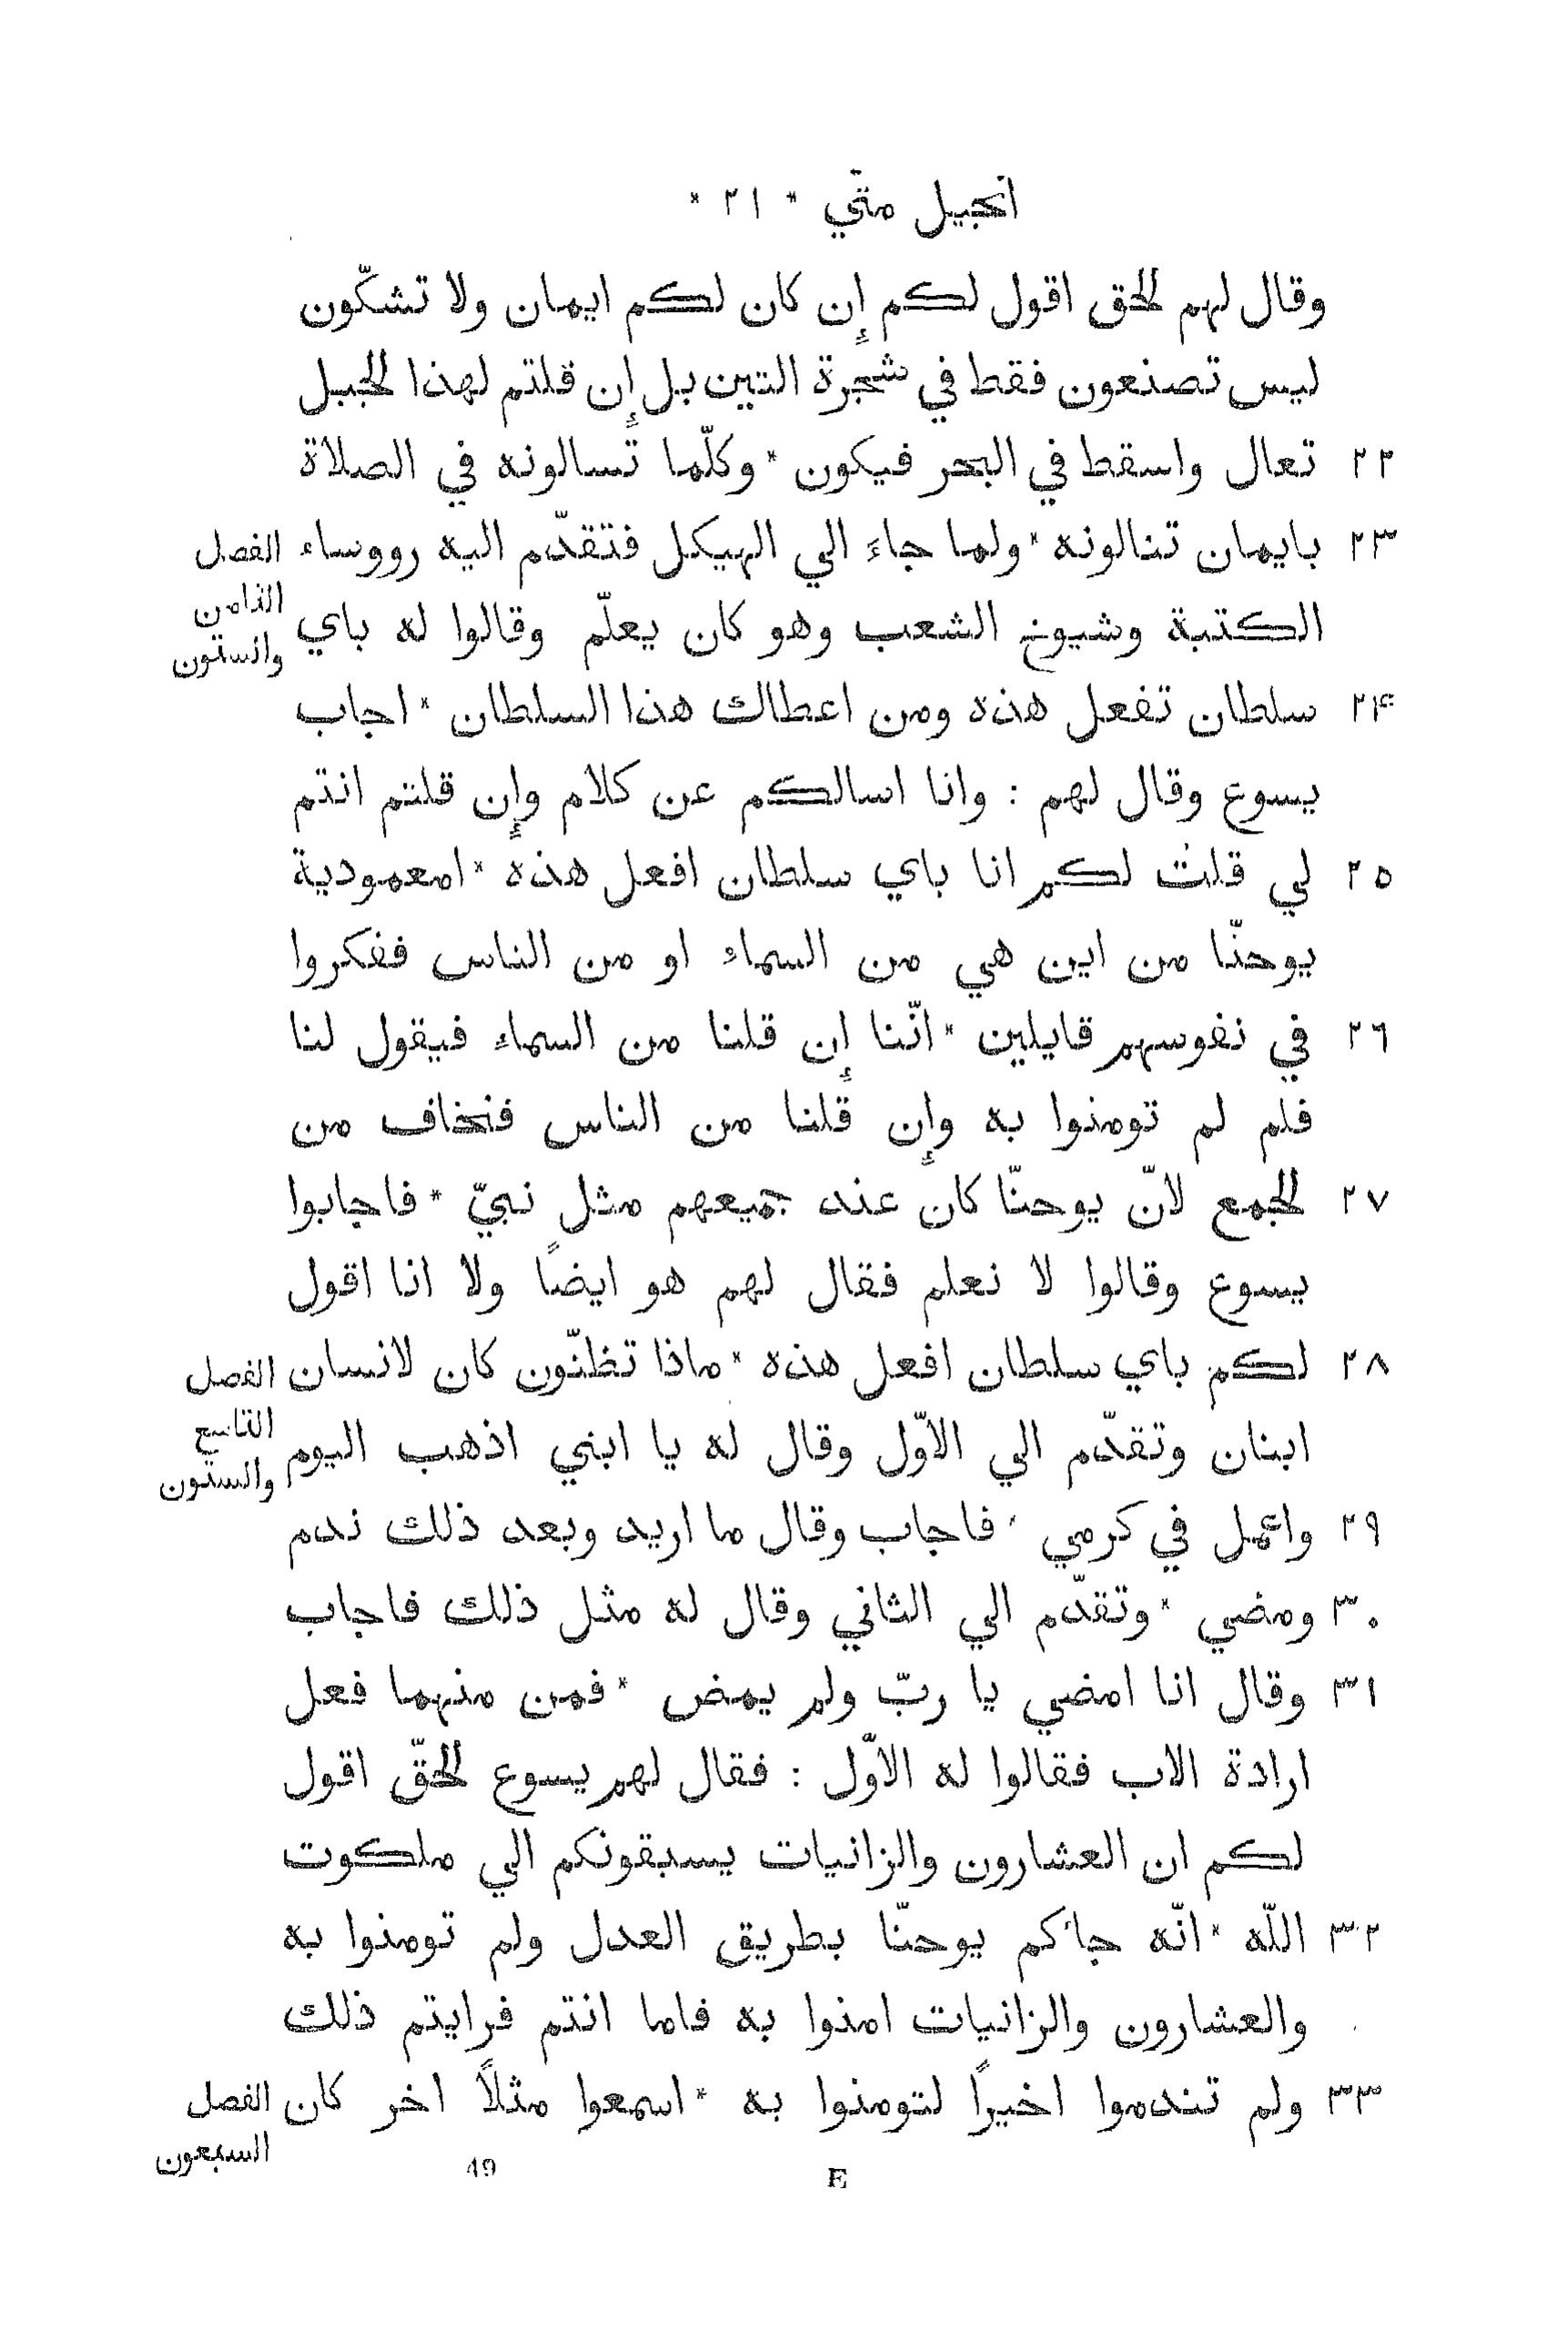 انجيل متّي * ٢١ *
وقال لهم للحق اقول لكم إن كان لكم ايمان ولا تشكّون
ليس تصنعون فقط في شجرة التين بل إن قلتم لهذا للجبل
٢٢ تعال واسقط في البحر فيكون * وكلّما تسالونه في الصلاة
٢٣ بايمان تنالونه * ولما جاءَ الي الهيكل فتقدّم اليه رووساء
الفصل الثامن والستون
الكتبة وشيوخ الشعب وهو كان يعلّم وقالوا له باي
٢۴ سلطان تفعل هذه ومن اعطاك هذا السلطان * اجاب
يسوع وقال لهم : وانا اسالكم عن كلام وإن قلتم انتم
٢٥ لي قلتُ لكم انا باي سلطان افعل هذه * امعمودية
يوحنّا من اين هي من السماء او من الناس ففكروا
٢٦ في نفوسهم قايلين * انّنا إن قلنا من السماء فيقول لنا
فلم لم تومنوا به وإن قلنا من الناس فنخاف من
٢٧ للجمع لانّ يوحنّا كان عند جميعهم مثل نبيّ * فاجابوا
يسوع وقالوا لا نعلم فقال لهم هو ايضًا ولا انا اقول
٢٨ لكم باي سلطان افعل هذه * ماذا تظنّون كان لانسان
الفصل التاسع والستون
ابنان وتقدّم الي الاوّل وقال له يا ابني اذهب اليوم
٢٩ واعمل في كرمي * فاجاب وقال ما اريد وبعد ذلك ندم
٣٠ ومضي * وتقدّم الي الثاني وقال له مثل ذلك فاجاب
٣١ وقال انا امضي يا ربّ ولم يمض * فمن منهما فعل
ارادة الاب فقالوا له الاوّل : فقال لهم يسوع للحقّ اقول
لكم ان العشارون والزانيات يسبقونكم الي ملكوت
٣٢ اللّه * انّه جاءَكم يوحنّا بطريق العدل ولم تومنوا به
والعشارون والزانيات امنوا به فاما انتم فرايتم ذلك
٣٣ ولم تندموا اخيرًا لتومنوا به * اسمعوا مثلًا اخر كان
الفصل السبعون
49 E